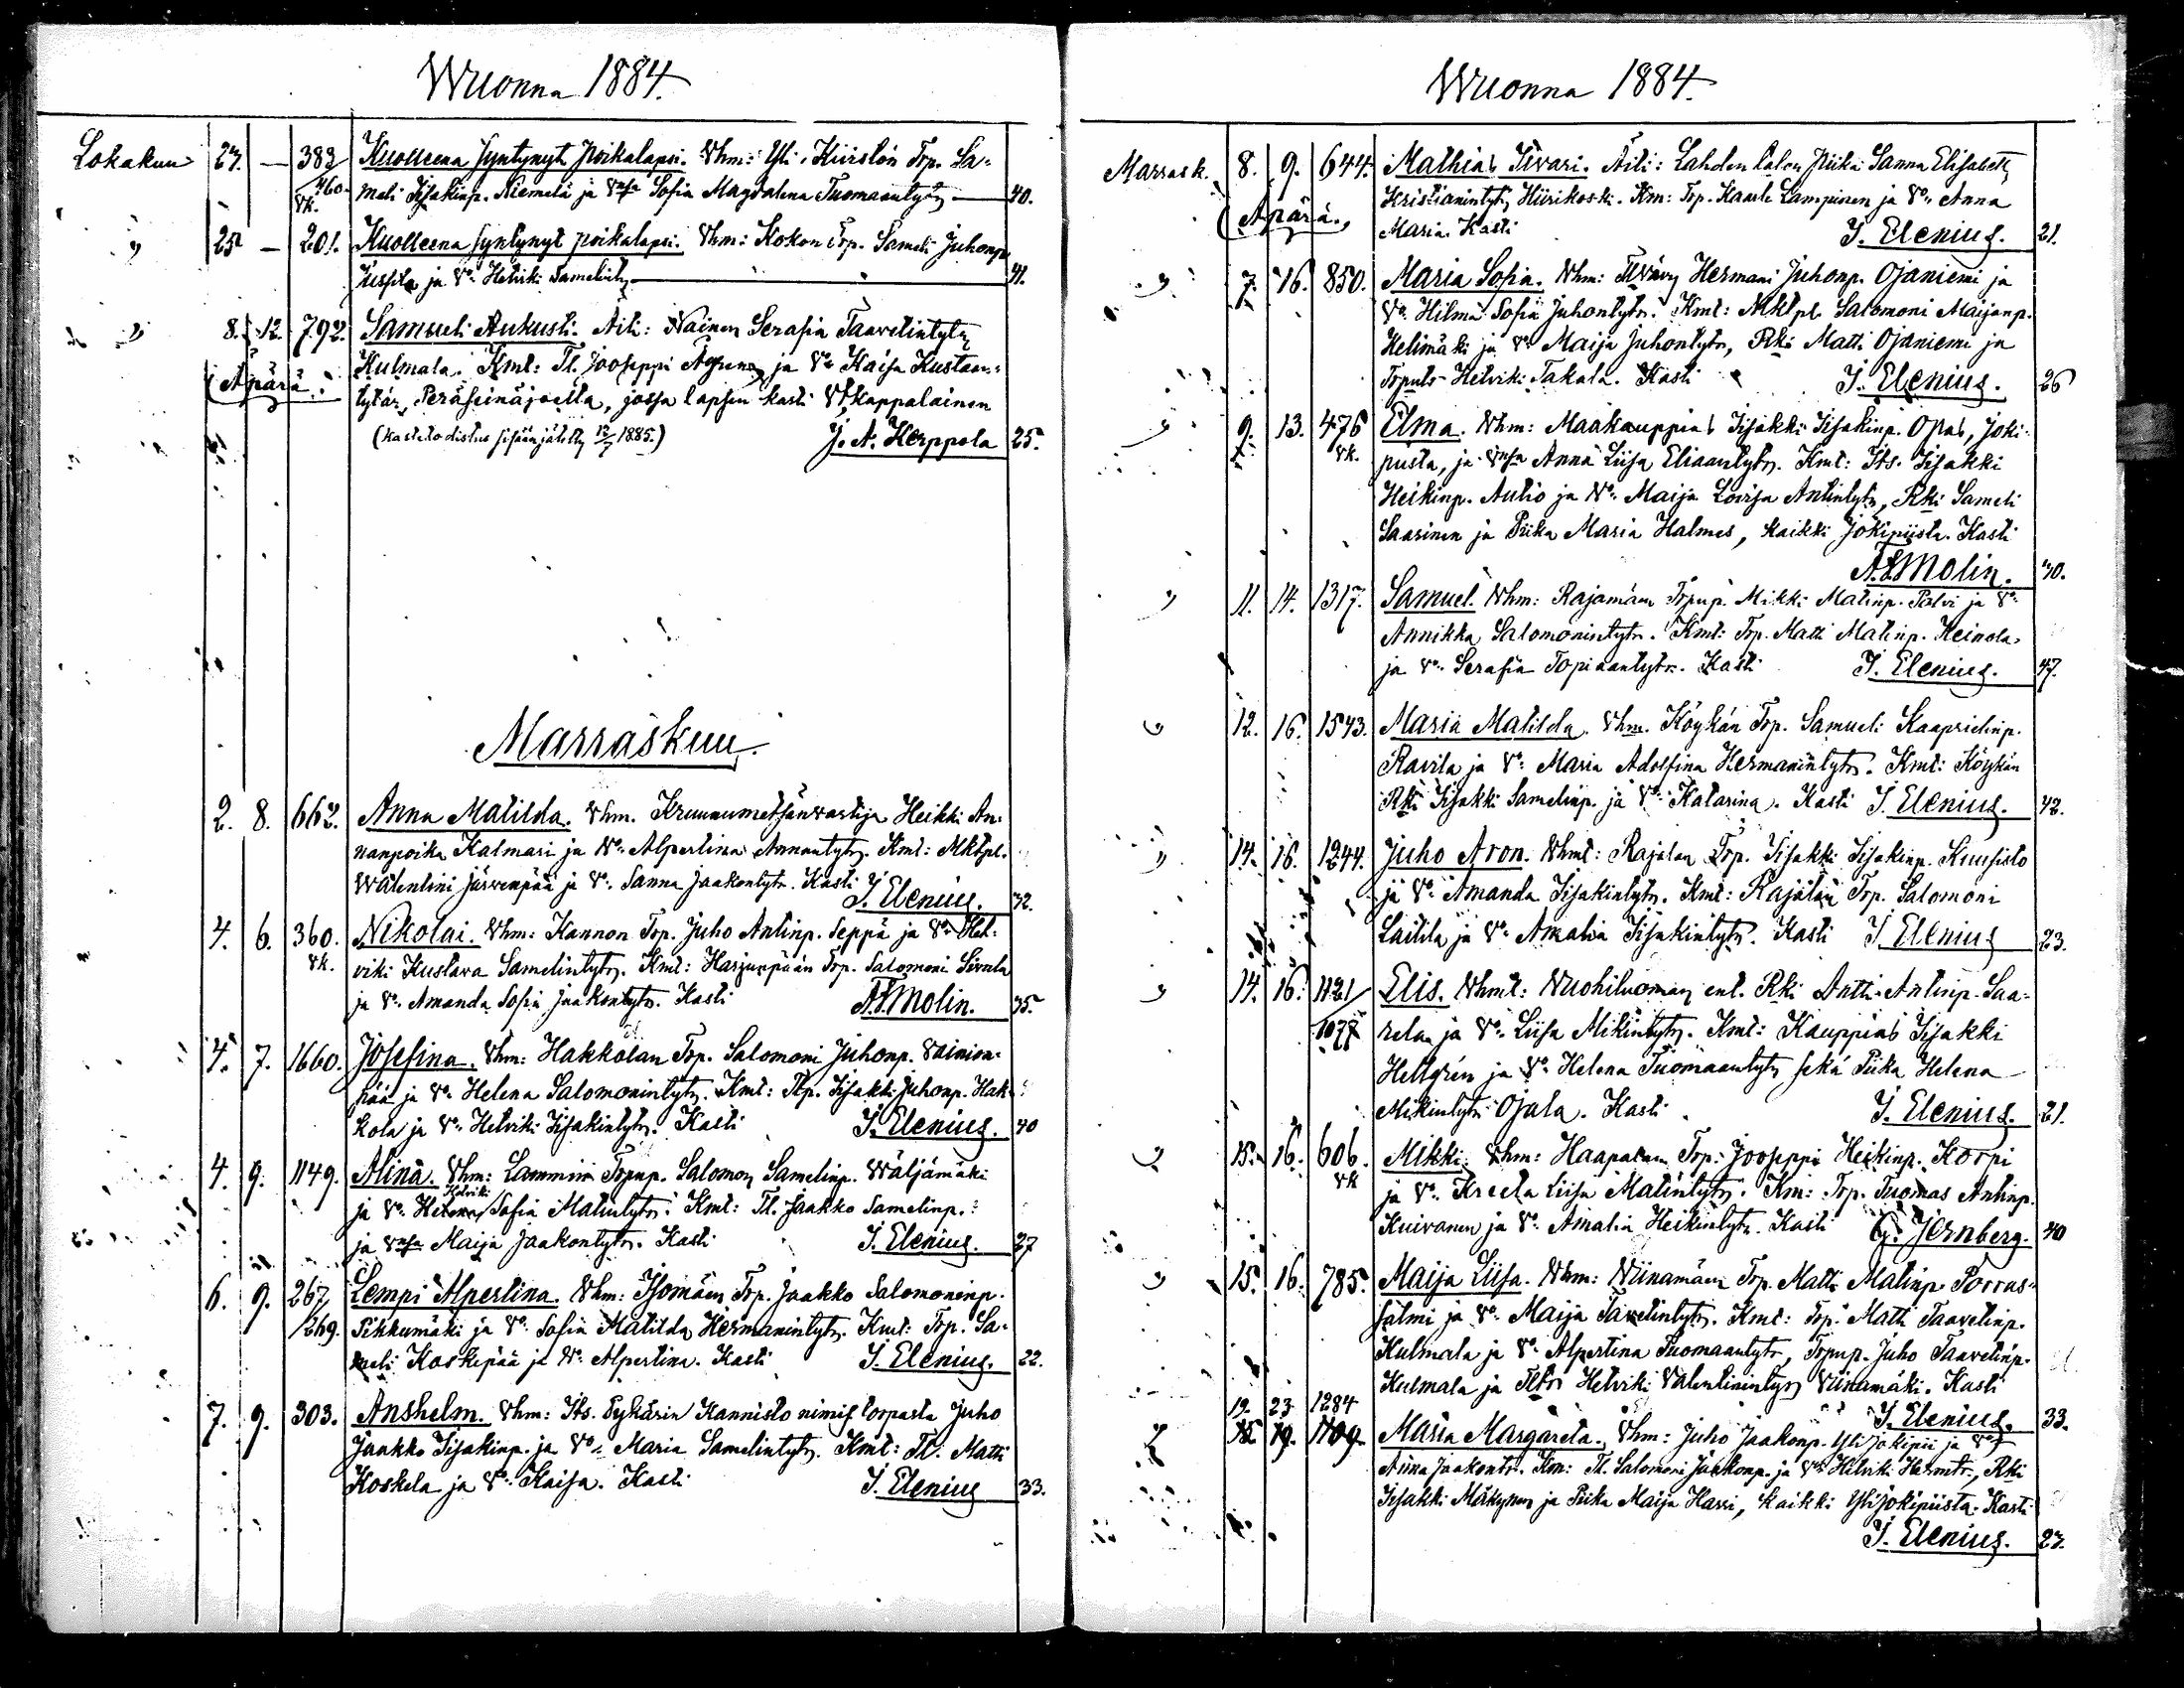 Wuonna 1884.
Lokakuu 27. — 383/460. vk. Kuolleena syntynyt poikalapsi. Vhm: Yli-Kiirslön Trp. Sa-
meli Iisakinp. Niemelä ja Vnsa Sofia Magdalena Tuomaantytr — 40.
" 25 — 201. Kuolleena syntynyt poikalapsi. Vhm: Kokon Trp. Sameli Juhonp.
Jussila ja Vo. Helviki Samelintr — 41.
" 8. 12. 792. Samueli Aukusti. Äiti: Nainen Serafia Taavetintytr
Kulmala. Kmt: Tl. Jooseppi Ägren ja Vo Kaisa Kustaan-
(Äpärä.) tytär, Peräseinäjoella, jossa lapsen kasti Vt. kappalainen
(kastetodistus sisäänjätetty 12/7 1885.) J. A. Herppola 25.
Marraskuu.
2. 8. 662. Anna Matilda. Vhm. Kruununmetsänvartija Heikki An-
nanpoika Kalmari ja Vo. Alpertina Annantytr. Kmt: Mktpl.
Walentini Järvenpää ja Vo. Sanna Jaakontytr. Kasti
J. Elenius. 32.
4. 6. 360. vk. Nikolai. Vhm: Kannon Trp. Juho Antinp. Seppä ja Vo Hel-
viki Kustava Samelintytr. Kmt: Harjunpään Trp. Salomoni Sivula
ja Vo. Amanda Sofia Jaakontytr. Kasti A. E. Molin. 35.
4. 7. 1660. Josefina. Vhm: Hakkolan Trp. Salomoni Juhonp. Vainion-
pää ja Vo. Helena Salomonintytr. Kmt: Tlp. Iisakki Juhonp. Hak-
kola ja Vo. Helviki Iisakintytr. Kasti J. Elenius. 40
4. 9. 1149. Alina. Vhm: Lammin Trpnp. Salomon Samelinp. Wäljämäki
Helviki
ja Vo. Helena Sofia Matintytr. Kmt: Tl. Jaakko Samelinp.
ja Vnsa Maija Jaakontytr. Kasti J. Elenius. 27
6. 9. 267/269. Lempi Alpertina. Vhm: Isomäen Trp. Jaakko Salomoninp.
Pikkumäki ja Vo. Sofia Matilda Hermanintytr. Kmt: Trp. Sa-
meli Koskipää ja Vo. Alpertina. Kasti J. Elenius. 22.
7. 9. 303. Anshelm. Vhm: Its. Sykärin Kannisto nimis. torpasta Juho
Jaakko Iisakinp. ja Vo. Maria Samelintytr. Kmt: Tl. Matti
Koskela ja Vo. Kaisa. Kasti J. Elenius 33.
Wuonna 1884.
Marrask. 8. 9. 644. Mathias Iivari. Äiti: Lahden talon Piika Sanna Elisabett
Kristianintytr Hiirikoski. Km: Trp. Kaarle Lampinen ja Vo. Anna
(Äpärä.) Maria. Kasti J. Elenius. 21.
" 7. 16. 850. Maria Sofia. Vhm: Tlvävy Hermani Juhonp. Ojaniemi ja
Vo. Hilma Sofia Juhontytr. Kmt: Mktpl. Salomoni Maijanp.
Helimäki ja Vo. Maija Juhontytr, Rki Matti Ojaniemi ja
Trpntr Helviki Takala. Kasti J. Elenius. 26
" 9. 13. 476 vk. Elma. Vhm: Maakauppias Iisakki Iisakinp. Opas, Joki-
pusta, ja Vnsa Anna Liisa Eliaantytr. Kmt: Its. Iisakki
Heikinp. Autio ja Vo. Maija Lovisa Antintytr, Rki Sameli
Saarinen ja Piika Maria Halmes, kaikki Jokipiista. Kasti
A. E. Molin. 30.
" 11. 14. 1317. Samuel. Vhm: Rajamäen Trpnp. Mikki Matinp. Palvi ja Vo.
Annikka Salomonintytr. Kmt: Trp. Matti Matinp. Heinola
ja Vo. Serafia Topiaantytr. Kasti J. Elenius. 47.
" 12. 16. 1543. Maria Matilda. Vhm. Köykän Trp. Samueli Kaaprielinp.
Ravila ja Vo. Maria Adolfina Hermanintytr. Kmt: Köykän
Rki Iisakki Samelinp. ja Vo. Katarina. Kasti J. Elenius. 42.
" 14. 16. 1244. Juho Aron. Vhmt: Rajalan Trp. Iisakki Iisakinp. Kuusisto
ja Vo. Amanda Iisakintytr. Kmt: Rajalan Trp. Salomoni
Laitila ja Vo. Amalia Iisakintytr. Kasti J. Elenius 23.
" 14. 16. 1121/1077 Elis. Vhmt: Wuohiluoman ent. Rki Antti Antinp. Saa-
rela ja Vo. Liisa Mikintytr. Kmt: Kauppias Iisakki
Hellgrén ja Vo. Helena Tuomaantytr sekä Piika Helena
Mikintytr Ojala. Kasti J. Elenius. 21.
" 15. 16. 606. vk Mikki. Vhm: Haapalan Trp. Jooseppi Heikinp. Korpi
ja Vo. Kreeta Liisa Matintytr. Km: Trp. Tuomas Antinp.
Kuivanen ja Vo. Amalia Heikintytr. Kasti G. Jernberg. 40
" 15. 16. 785. Maija Liisa. Vhm: Niinamäen Trp. Matti Matinp. Porras-
salmi ja Vo. Maija Taavetintytr. Kmt: Trp. Matti Taavetinp.
Kulmala ja Vo. Alpertina Tuomaantytr, Trpnp. Juho Taavetinp.
Kulmala ja Tltr Helviki Valentinintytr Viinamäki. Kasti
J. Elenius. 33.
12. 23 1284
" 18. 19. 1709. Maria Margareta. Vhm: Juho Jaakonp. Ylijokipii ja Vo
Anna Jaakontr. Km: Tl. Salomoni Jaakonp. ja Vo Helviki Hermtr., Rki
Iisakki Mäkynen ja Piika Maija Harri, kaikki Ylijokipiista. Kasti
J. Elenius. 27.